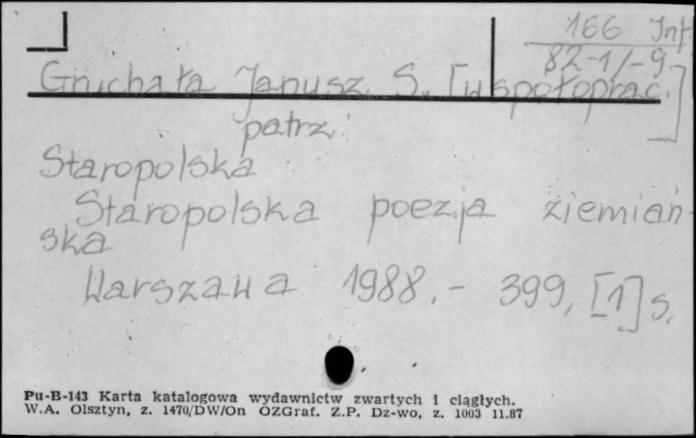 166 Inf.
82-1/-9
Gruchała Janusz S. [współoprac.]
patrz
Staropolska
Staropolska poezja ziemiań
ska
Warszawa 1988.- 399, [1] s.
Pu-B-143 Karta katalogowa wydawnictw zwartych i ciągłych.
W.A. Olsztyn, z. 1470/DW/On OZGraf. Z.P. Dz-wo, z. 1003 11.87